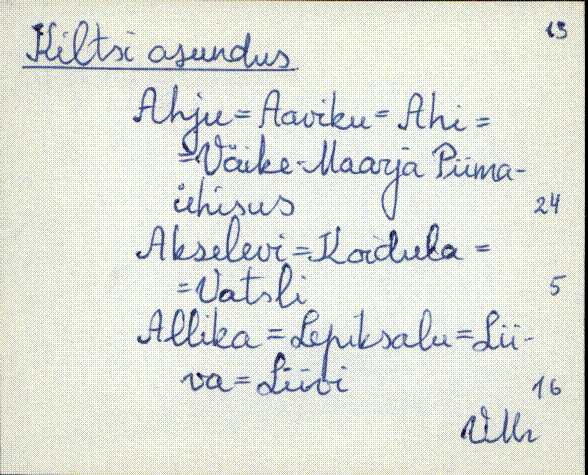 13
Kiltsi asundus
Ahju = Aaviku = Ahi =
= Väike-Maarja Piima-
ühisus 24
Akselevi = Koidula =
= Vatsli 5
Allika = Lepiksalu = Lii-
va = Liivi 16